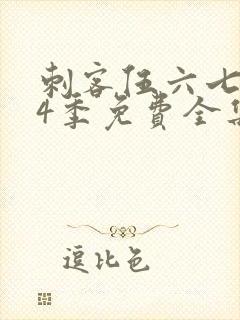 刺客伍六七
4季免费全集
逗比色